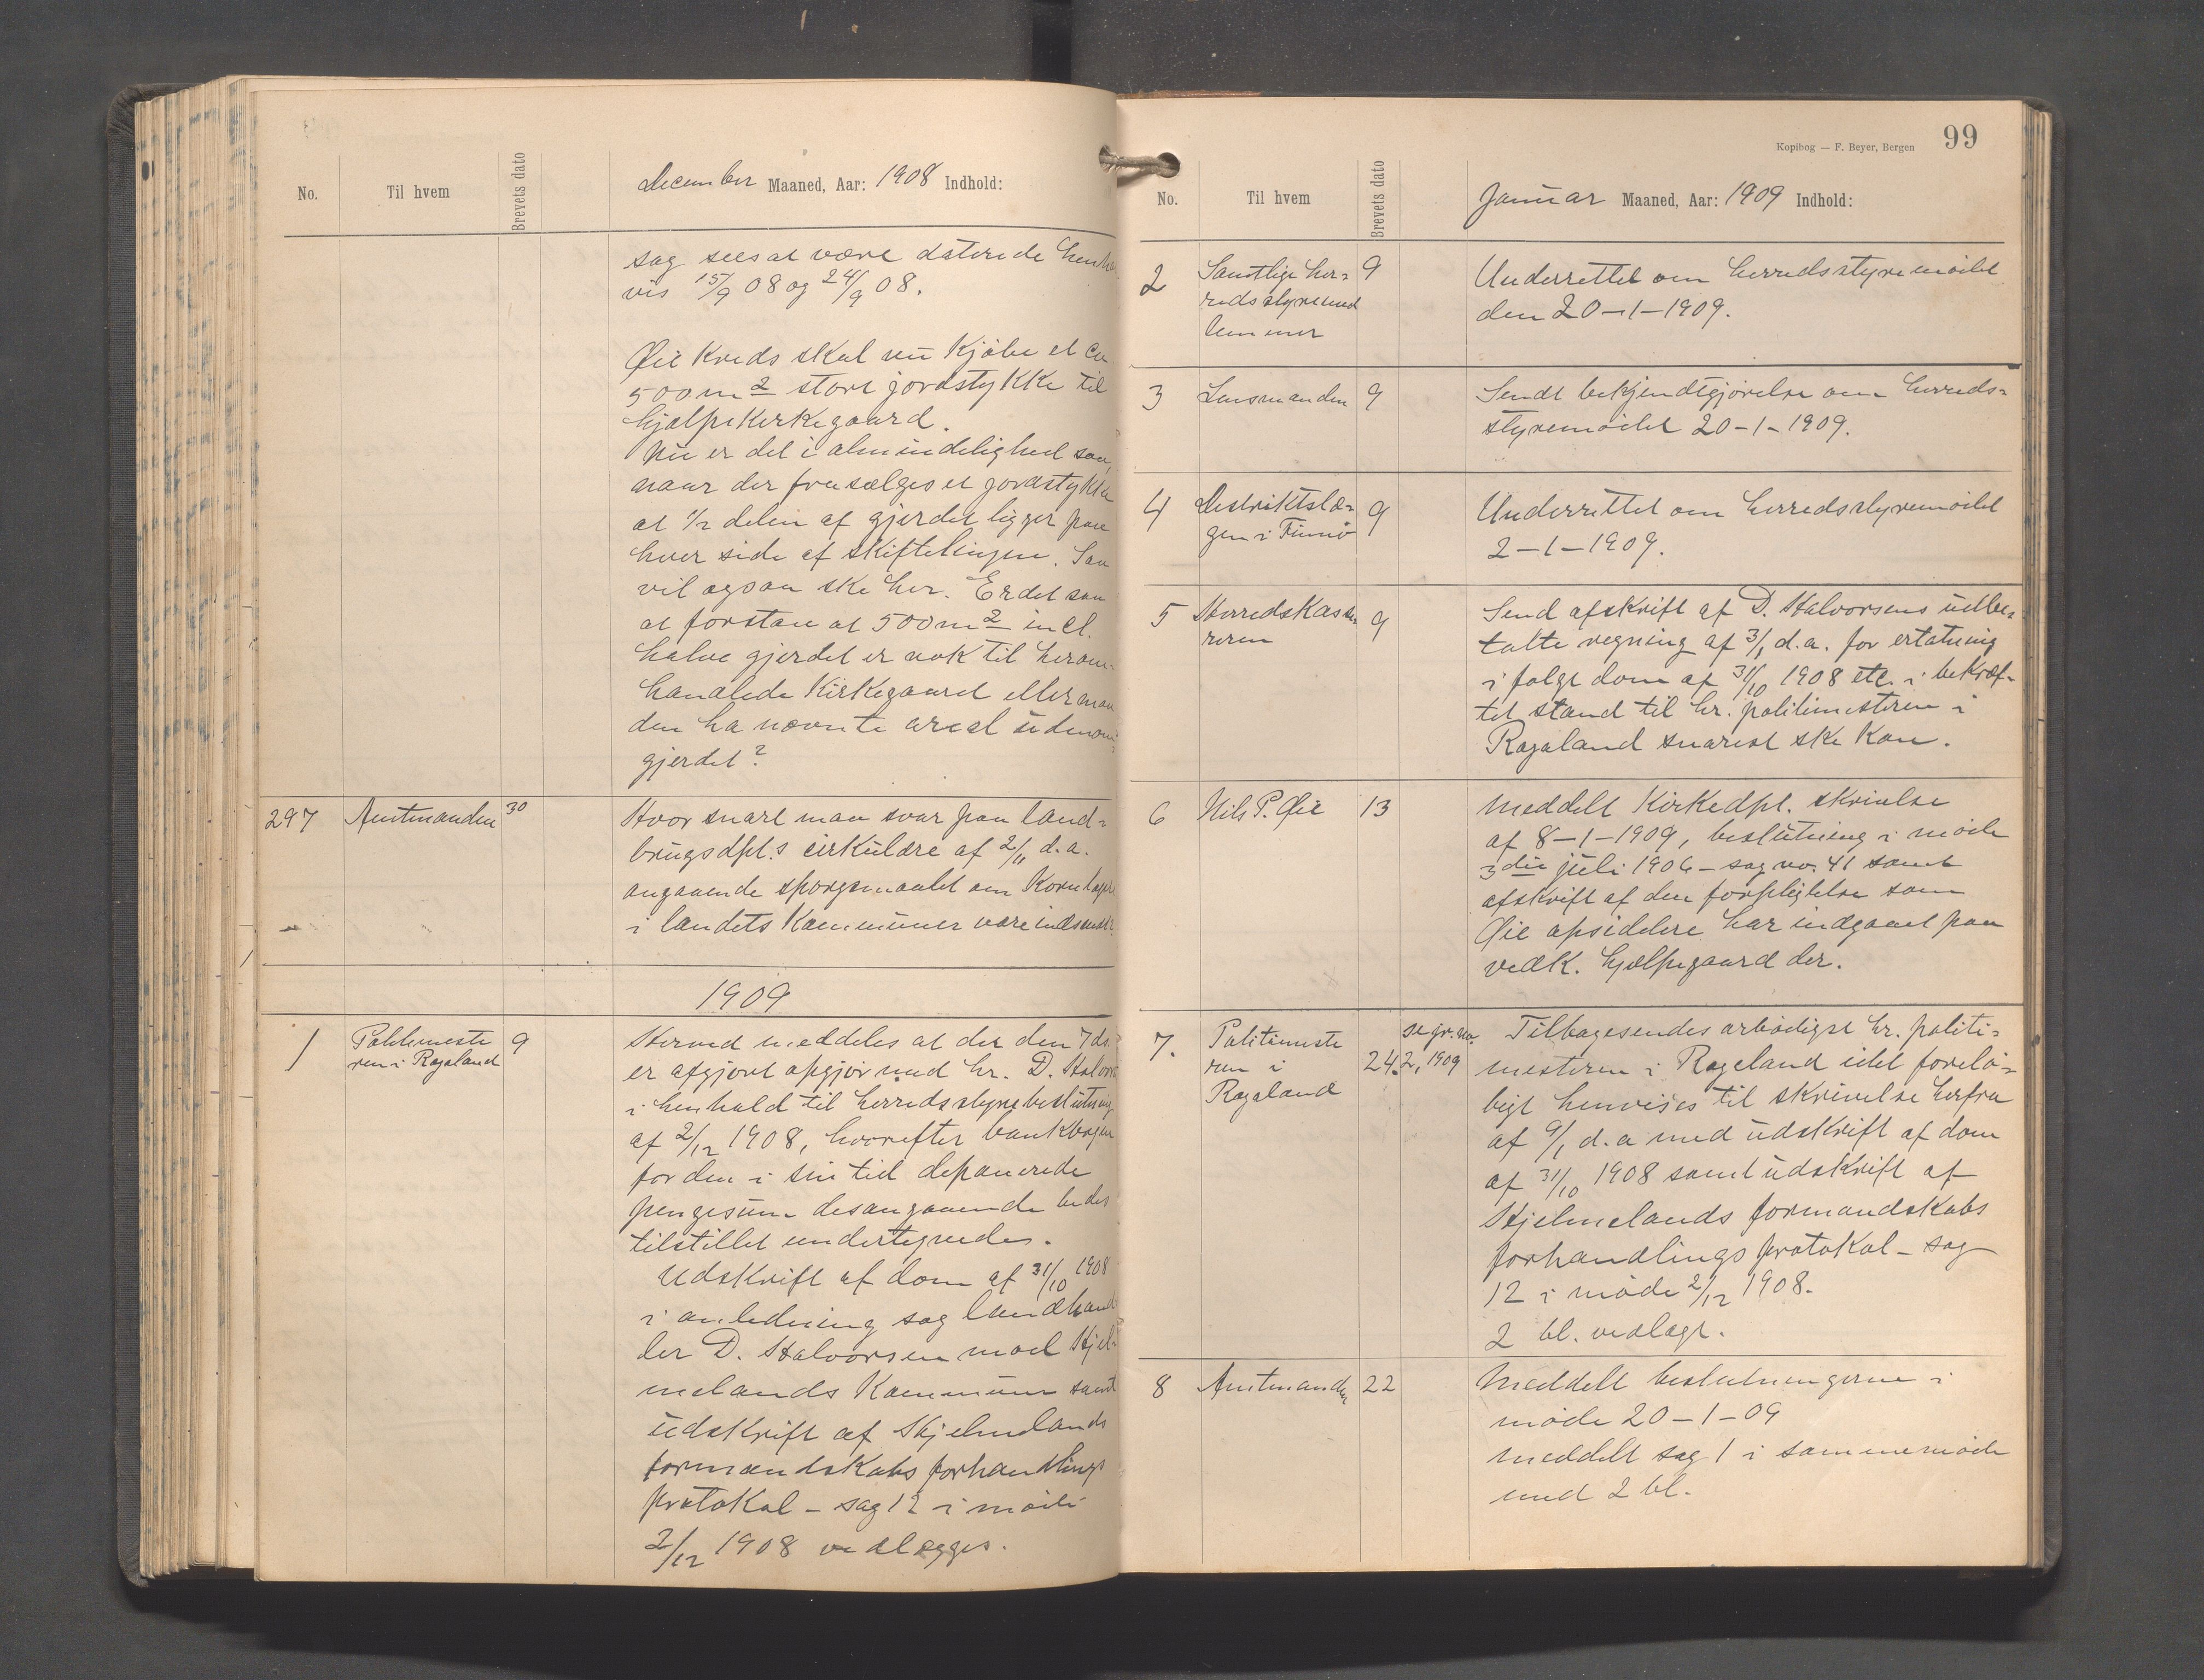 No. Til hvem Brevets dato December Maaned, Aar: 1908 Indhold:
sag sees at være daterede
vis 15/9 08 og 24/9 08.
Øie Kreds skal nu Kjøbe et ca
500 m2 stort jordstykke til
hjælpekirkegaard.
Nu er det i almindelighed saa,
naar der fra sælges et jordstykke
at 1/2 delen af gjerdet ligger paa
hver side af skiftelinjen. Saa
vil ogsaa ske her. Er det saa
at forstaa at 500 m2 incl.
halve gjerdet er nok til herom-
handlede Kirkegaard eller maa
den ha nævnte areal udenom
gjerdet?
297 Amtmanden 30 Hvor snart man svar paa land-
brugsdpt.s cirkulære af 2/11 d.a.
angaaende spørgsmaalet om Kornlagre
i landets Kommuner være indsendt.
1909
1 Politimeste 9 Herved meddeles at der den 7 ds.
ren i Rogaland er afgjort opgjør med hr. D. Halvor
i henhold til herredsstyrebeslutning
af 2/12 1908, hvorefter bankbogen
for den i sin tid deponerede
pengesum desangaaende bedes
tilstillet undertegnede.
Udskrift af dom af 31/10 1908
i anledning sag landhand
ler D. Halvorsen mod Hjel-
melands Kommune samt
udskrift af Hjelmelands
formandskabs forhandlings
protokol – sag 12 i møde
2/12 1908 vedlægges.
Kopibog — F. Beyer, Bergen 99
No. Til hvem Brevets dato Januar Maaned, Aar: 1909 Indhold:
2 Samtlige her- 9 Underrettet om herredsstyremødet
redsstyremed den 20–1–1909.
lemmer
3 Lensmanden 9 Sendt bekjendtgjørelse om herreds-
styremødet 20–1–1909.
4 Destriktslæ- 9 Underrettet om herredsstyremødet
gen i Finnø 2–1–1909.
5 Herredskasse- 9 Send afskrift af D. Halvorsens udbe-
reren talte regning af 3/1 d.a. for ertatning
i følge dom af 31/10 1908 etc. i bekræf-
tet stand til hr. politimesteren i
Rogaland snarest ske kan.
6 Nils P. Øie 13 Meddelt Kirkedpt. skrivelse
af 8–1–1909, beslutning i møde
3die juli 1906 – sag no. 41 samt
afskrift af den forpligtelse som
Øie opsiddere har indgaaet paa
vedk. hjelpegaard der.
7. Politimeste se gr. no. Tilbagesendes ærbødigst hr. politi-
ren i 24. 2, 1909 mesteren i Rogaland idet forelø-
Rogaland bigt henvises til skrivelse herfra
af 9/1 d.a med udskrift af dom
af 31/10 1908 samt udskrift af
Hjelmelands formandskabs
forhandlingsprotokol – sag
12 i møde 2/12 1908.
2 bl. vedlagt.
8 Amtmanden 22 Meddelt beslutningerne i
møde 20–1–09
meddelt sag 1 i samme møde
med 2 bl.